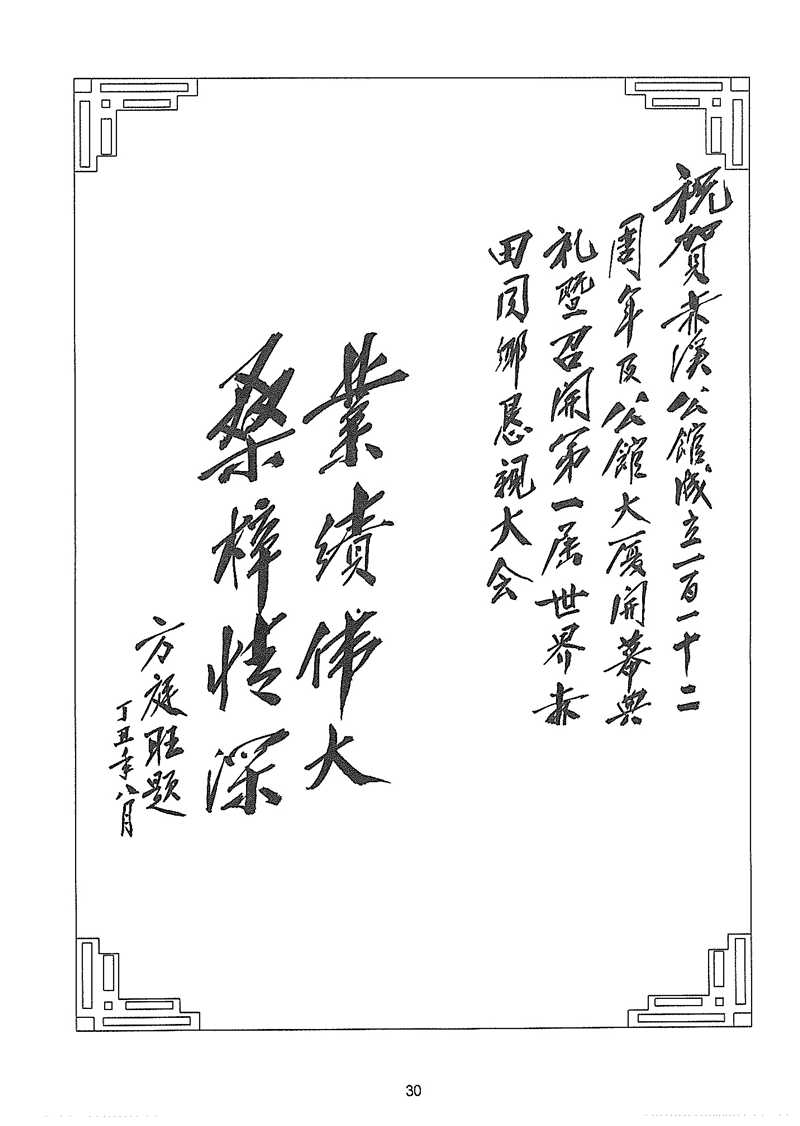 祝贺赤溪公館成立一百一十二
周年及公館大厦開幕典
礼暨召開第一届世界赤
田同鄉恳親大会
業績伟大
桑梓情深
方庭旺题
丁丑年八月
30